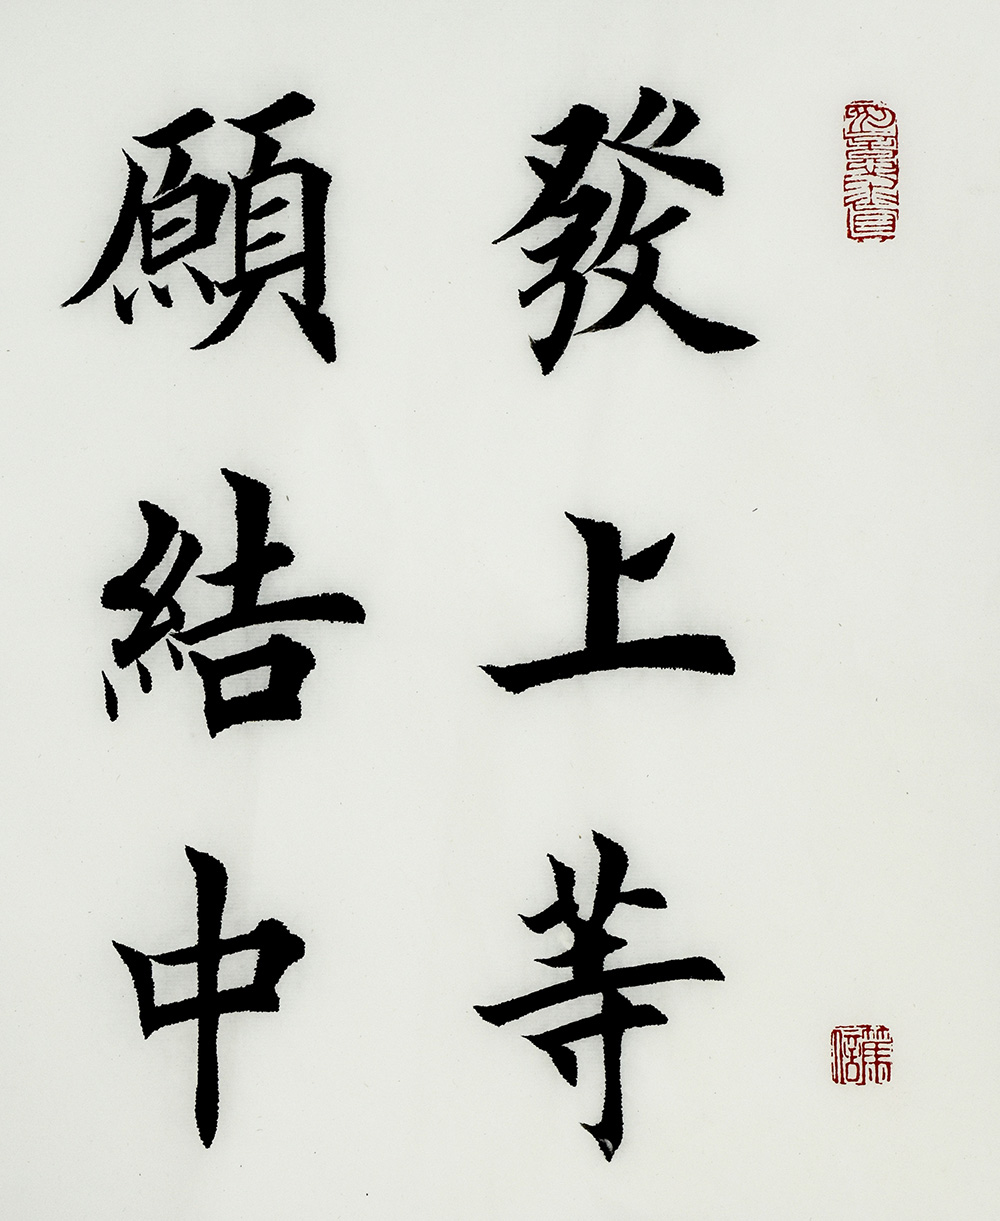 發上等
願結中